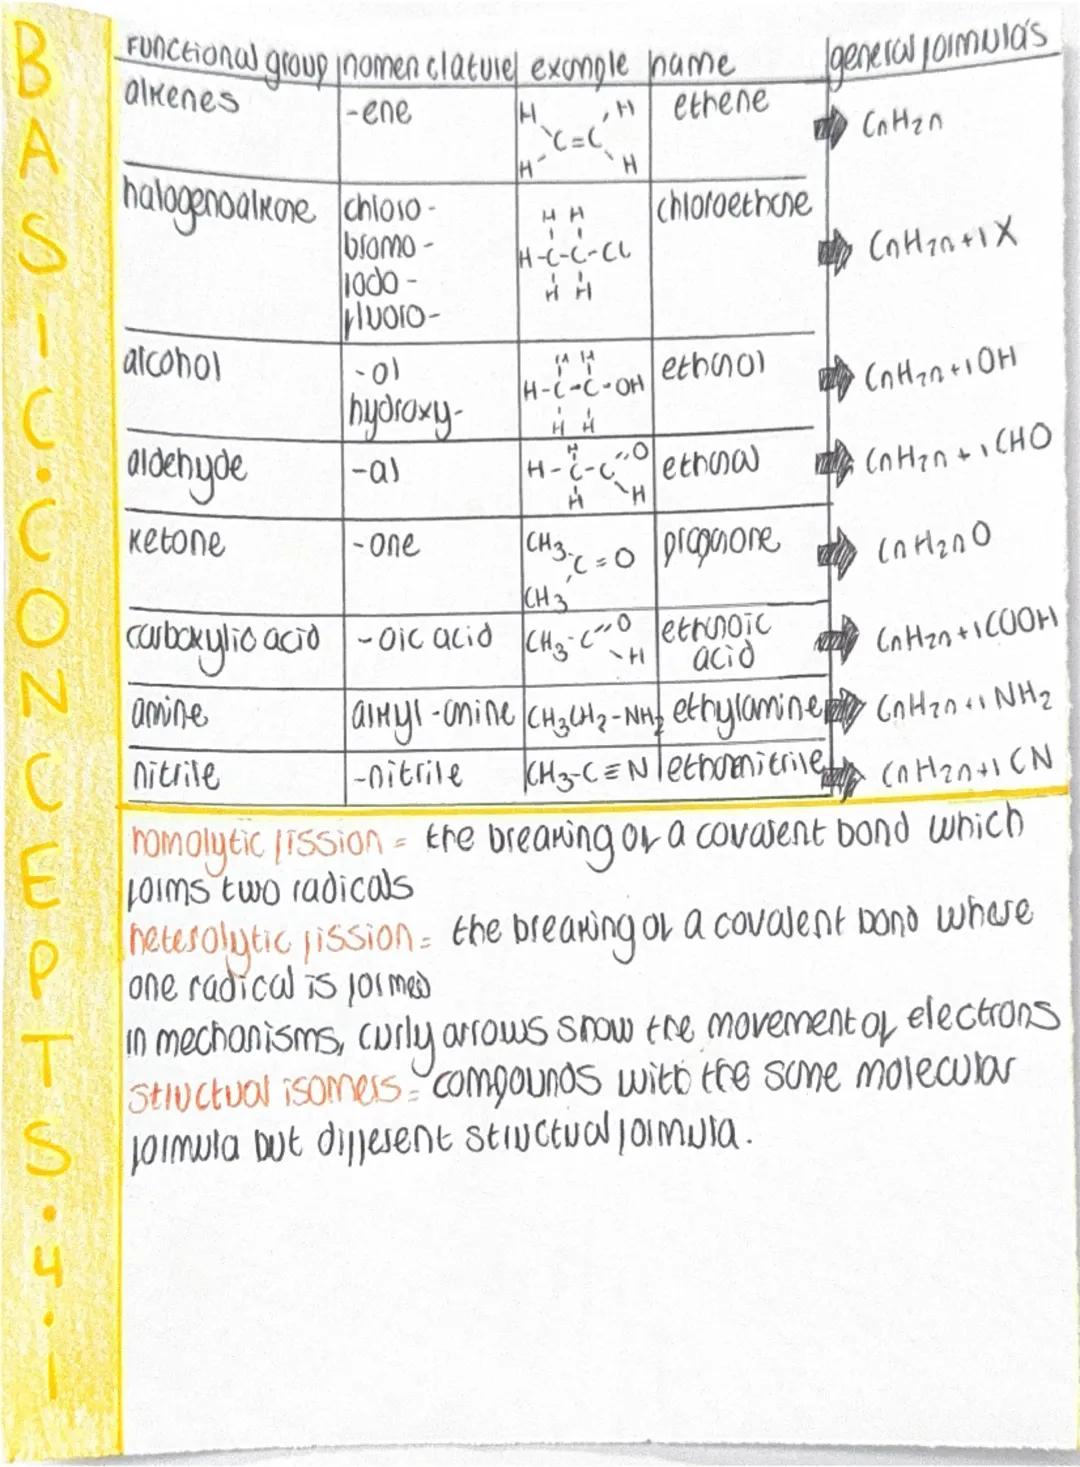 BASIC.CONCEPTS.4.1
Functional group nomenclature example name general formula's
alkenes -ene H H C=C H H ethene CnH2n
halogenoalkane chloro- H H chloroethane CnH2n+1X
bromo- H-C-C-Cl
iodo- H H
fluoro-
alcohol -ol H H ethanol CnH2n+1OH
hydroxy- H-C-C-OH
H H
aldehyde -al H H-C-C O H H ethanal CnH2n+1CHO
ketone -one CH3 C=O CH3 propanone CnH2nO
carboxylic acid -oic acid CH3-C O H ethanoic CnH2n+1COOH
acid
amine alkyl-amine CH3CH2-NH2 ethylamine CnH2n+1NH2
nitrile -nitrile CH3-C≡N ethanenitrile CnH2n+1CN
homolytic fission = the breaking of a covalent bond which
forms two radicals
heterolytic fission = the breaking of a covalent bond where
one radical is formed
in mechanisms, curly arrows show the movement of electrons
structual isomers = compounds with the same molecular
formula but different structual formula.